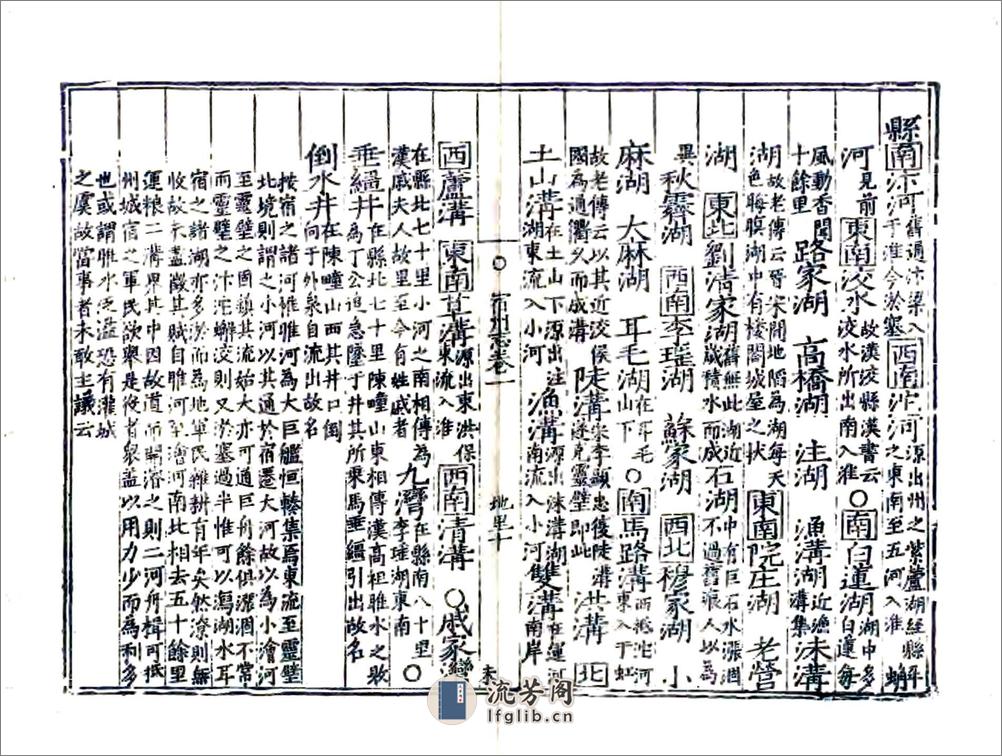 縣南汴河舊通汴梁入于淮今淤塞西南沱河源出州之紫蘆湖經縣之東南至五河入淮
河見前東南洨水故漢洨縣漢書云洨水所出南入淮○南白蓮湖湖中多白蓮每
風動香聞十餘里路家湖 高橋湖 注湖 漁溝湖近漁溝集沫溝
湖故老傳云晉宋間地陷為湖每天色晦暝湖中有樓閣城屋之狀東南院庄湖 老營
湖 東北劉清家湖舊無此湖近歲積水而成石湖中有巨石水漲涸不過舊痕人以為
異秋霽湖 西南李瑾湖 蘇家湖 西北穆家湖 小
麻湖 大麻湖 耳毛湖在耳毛山下○南馬路溝西沱河東入于虹
故老傳云以其近洨候國為通衢久而成溝陡溝宋李顯忠復陡溝遂克靈壁即此洪溝 北
土山溝在土山下源出注湖東流入小河漁溝源出沫溝湖南流入小河雙溝在運河南岸
宿州志卷一 地里十 朱
西蘆溝 東南草溝源出東洪保東流入淮西南清溝 ○戚家灣
在縣北七十里小河之南相傳為漢戚夫人故里至今有姓戚者九灣在縣南八十里李瑾湖東南○
垂繮井在縣北七十里陳疃山東相傳漢高祖睢水之敗為丁公追急墜于井其所乘馬垂繮引出故名
倒水井在陳疃山西其井口倒向于外泉自流出故名
按宿之諸河惟睢河為大巨艦恒輳集焉東流至靈壁
北境則謂之小河以其通於宿遷大河故以為小澮河
至靈壁之固鎮其流始大亦可通巨舟餘俱漲涸不常
而靈壁之汴沱澥洨則又淤塞過半惟可以瀉湖水耳
宿之諸湖亦多淤而為地軍民雜耕有年矣然潦則無
收故未盡徵其賦自睢河至澮河南北相去五十餘里
運粮二溝界其中因故道而開濬之則二河舟楫可抵
州城宿之軍民欲舉是役者衆盖以用力少而為利多
也或謂睢水泛溢恐有灌城
之虞故當事者未敢主議云
流芳阁
lfglib.cn